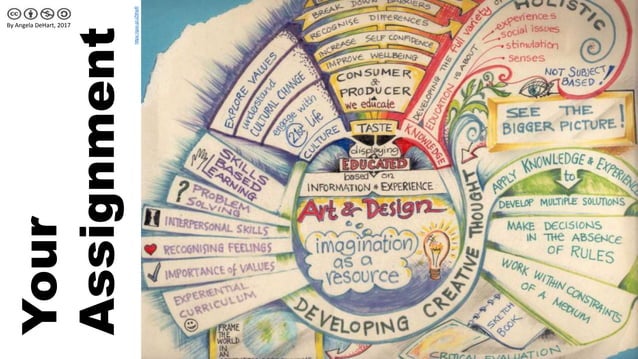 By Angela DeHart, 2017
Your
Assignment
BREAK DOWN BARRIERS
RECOGNISE DIFFERENCES
INCREASE SELF CONFIDENCE
IMPROVE WELLBEING
EXPLORE VALUES
understand
CULTURAL CHANGE
engage with
21st C
Life
CULTURE
CONSUMER
&
PRODUCER
we educate
TASTE
KNOWLEDGE
DEVELOPING THE full variety of
EDUCATION IS ABOUT
HOLISTIC
experiences
social issues
stimulation
senses
NOT SUBJECT
BASED!
SEE THE
BIGGER PICTURE!
displaying
EDUCATED
based on
INFORMATION & EXPERIENCE
Art & Design
imagination
as a
resource
DEVELOPING CREATIVE THOUGHT
SKILLS
BASED
LEARNING
? PROBLEM
SOLVING
INTERPERSONAL SKILLS
RECOGNISING FEELINGS
IMPORTANCE of VALUES
EXPERIENTIAL
CURRICULUM
FRAME
THE
WORLD
IN
AN
APPLY KNOWLEDGE & EXPERIENCE
to
DEVELOP MULTIPLE SOLUTIONS
MAKE DECISIONS
IN THE ABSENCE
OF RULES
WORK WITHIN CONSTRAINTS
OF A MEDIUM
SKETCH
BOOK
CRITICAL EVALUATION